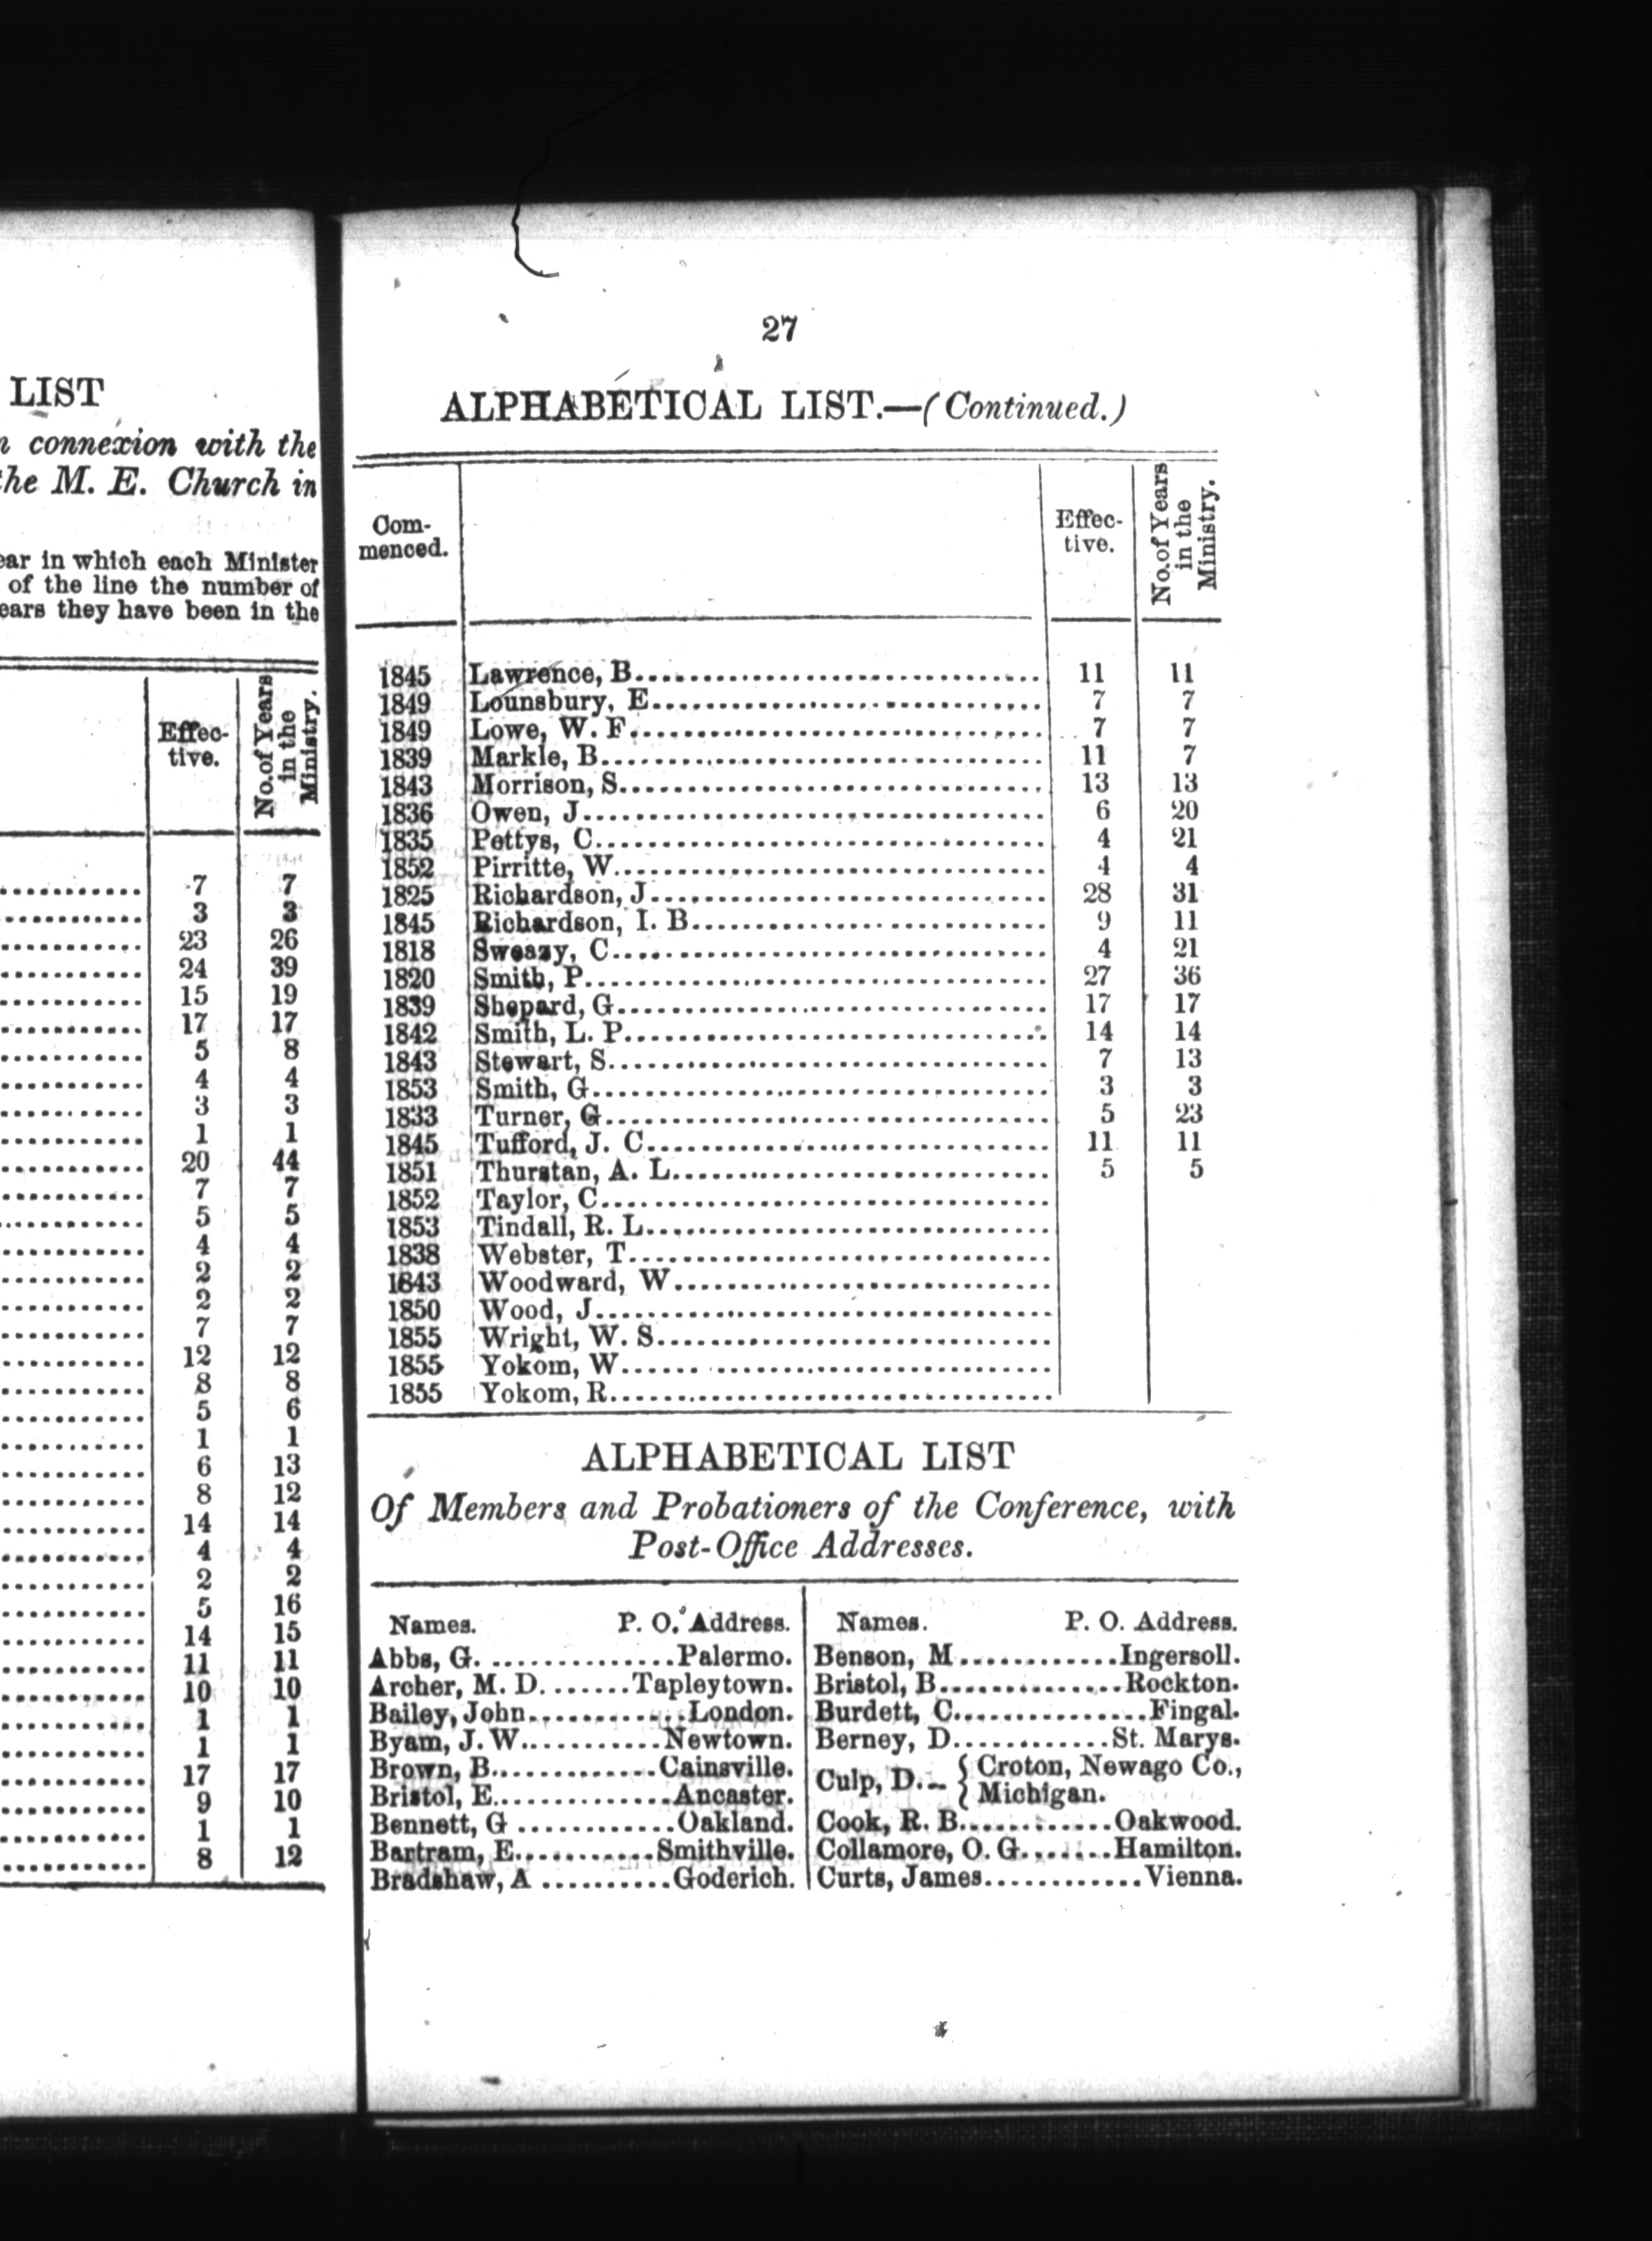 LIST
connexion with the
the M. E. Church in
ear in which each Minister
of the line the number of
ears they have been in the
Effec-
tive.
No. of Years
in the
Ministry.
7 7
3 3
23 26
24 39
15 19
17 17
5 8
4 4
3 3
1 1
20 44
7 7
5 5
4 4
2 2
2 2
7 7
12 12
8 8
5 6
1 1
6 13
8 12
14 14
4 4
2 2
5 16
14 15
11 11
10 10
1 1
1 1
17 17
9 10
1 1
8 12
27
ALPHABETICAL LIST.—(Continued.)
Com-
menced.
Effec-
tive.
No. of Years
in the
Ministry.
1845 Lawrence, B. 11 11
1849 Lounsbury, E. 7 7
1849 Lowe, W. F. 7 7
1839 Markle, B. 11 7
1843 Morrison, S. 13 13
1836 Owen, J. 6 20
1835 Pettys, C. 4 21
1852 Pirritte, W. 4 4
1825 Richardson, J. 28 31
1845 Richardson, I. B. 9 11
1818 Sweazy, C. 4 21
1820 Smith, P. 27 36
1839 Shepard, G. 17 17
1842 Smith, L. P. 14 14
1843 Stewart, S. 7 13
1853 Smith, G. 3 3
1833 Turner, G. 5 23
1845 Tufford, J. C. 11 11
1851 Thurstan, A. L. 5 5
1852 Taylor, C.
1853 Tindall, R. L.
1838 Webster, T.
1843 Woodward, W.
1850 Wood, J.
1855 Wright, W. S.
1855 Yokom, W.
1855 Yokom, R.
ALPHABETICAL LIST
Of Members and Probationers of the Conference, with
Post-Office Addresses.
Names. P. O. Address.
Abbs, G. Palermo.
Archer, M. D. Tapleytown.
Bailey, John London.
Byam, J. W. Newtown.
Brown, B. Cainsville.
Bristol, E. Ancaster.
Bennett, G Oakland.
Bartram, E. Smithville.
Bradshaw, A Goderich.
Names. P. O. Address.
Benson, M Ingersoll.
Bristol, B. Rockton.
Burdett, C. Fingal.
Berney, D. St. Marys.
Culp, D. { Croton, Newago Co.,
Michigan.
Cook, R. B. Oakwood.
Collamore, O. G. Hamilton.
Curts, James Vienna.